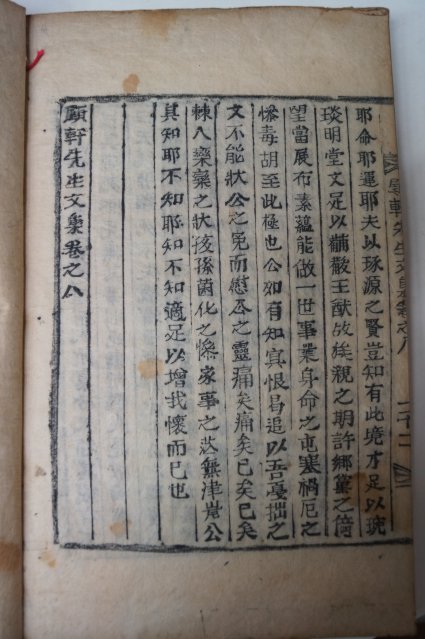 耶命耶運耶夫以琢源之賢豈知有此境才足以琬
琰明堂文足以黼黻王猷故族親之期許鄕黨之倚
望當展布素蘊能做一世事業身命之屯塞禍厄之
慘毒胡至此極也公如有知冥恨曷追以吾憂拙之
文不能狀公之冤而慰公之靈痛矣痛矣已矣已矣
棘人欒欒之狀孩孫茵化之慘家事之茫無津岸公
其知耶不知耶知不知適足以增我懷而已也
顧軒先生文集卷之八
顧軒先生文集卷之八